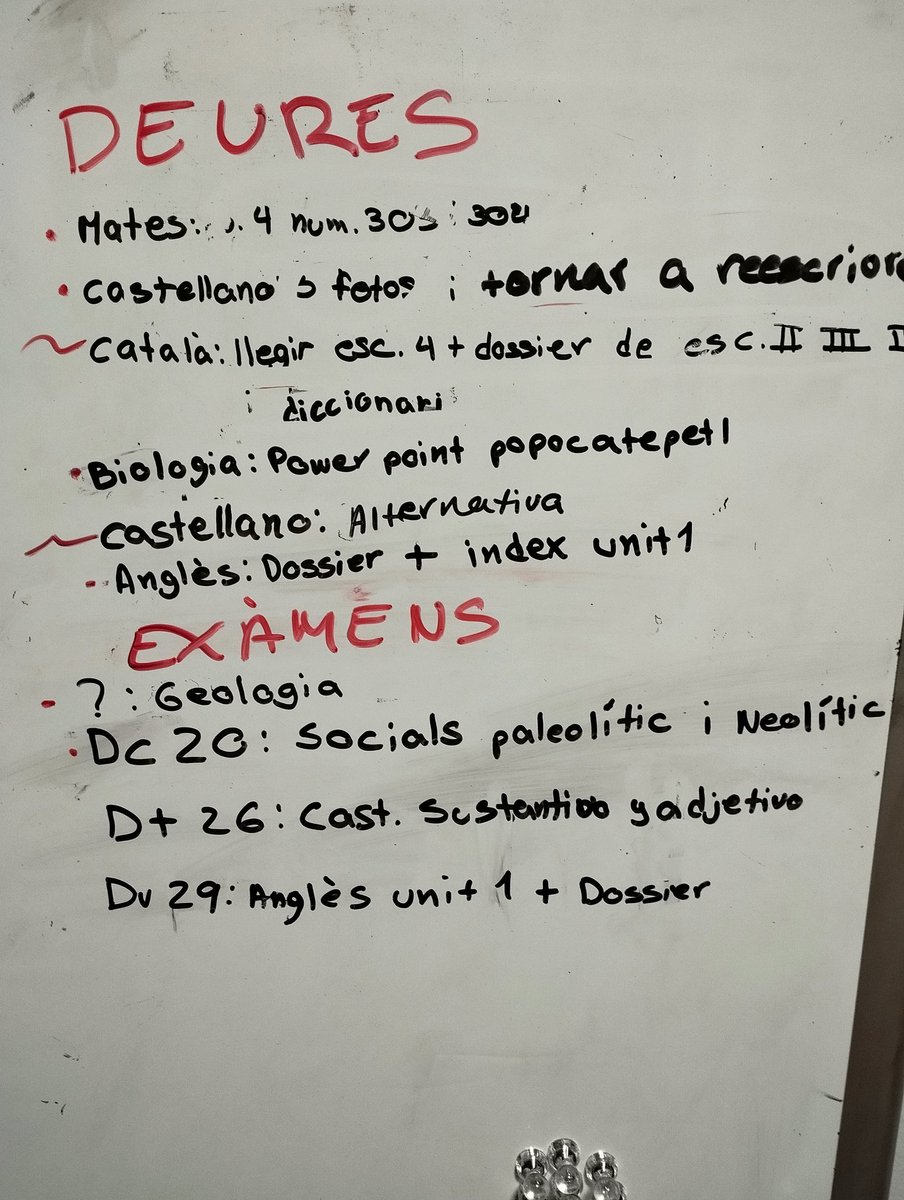 DEURES
• Mates: 4 num. 303 i 304
• Castellano 5 fotos i tornar a reescriore
~ Català: llegir esc. 4 + dossier de esc. II III
i diccionari
• Biologia: Power point popocatepetl
~ Castellano: Alternativa
- Anglès: Dossier + index unit 1
EXÀMENS
- ? : Geologia
• Dc 20: Socials paleolític i Neolític
Dt 26: Cast. Sustantivo y adjetivo
Dv 29: Anglès unit 1 + Dossier